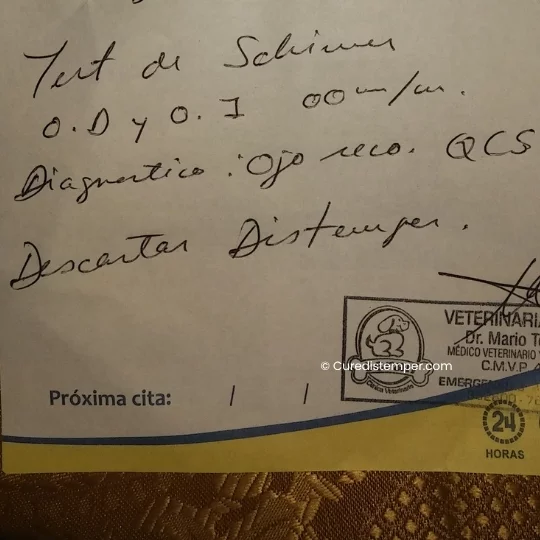 Test de Schirmer
O.D y O.I 00 mm/m.
Diagnostico: Ojo seco. QCS
Descartar Distemper.
VETERINARI
Dr. Mario T
MÉDICO VETERINARIO
C.M.V.P.
© Curedistemper.com
EMERGE
Próxima cita: / /
24
HORAS